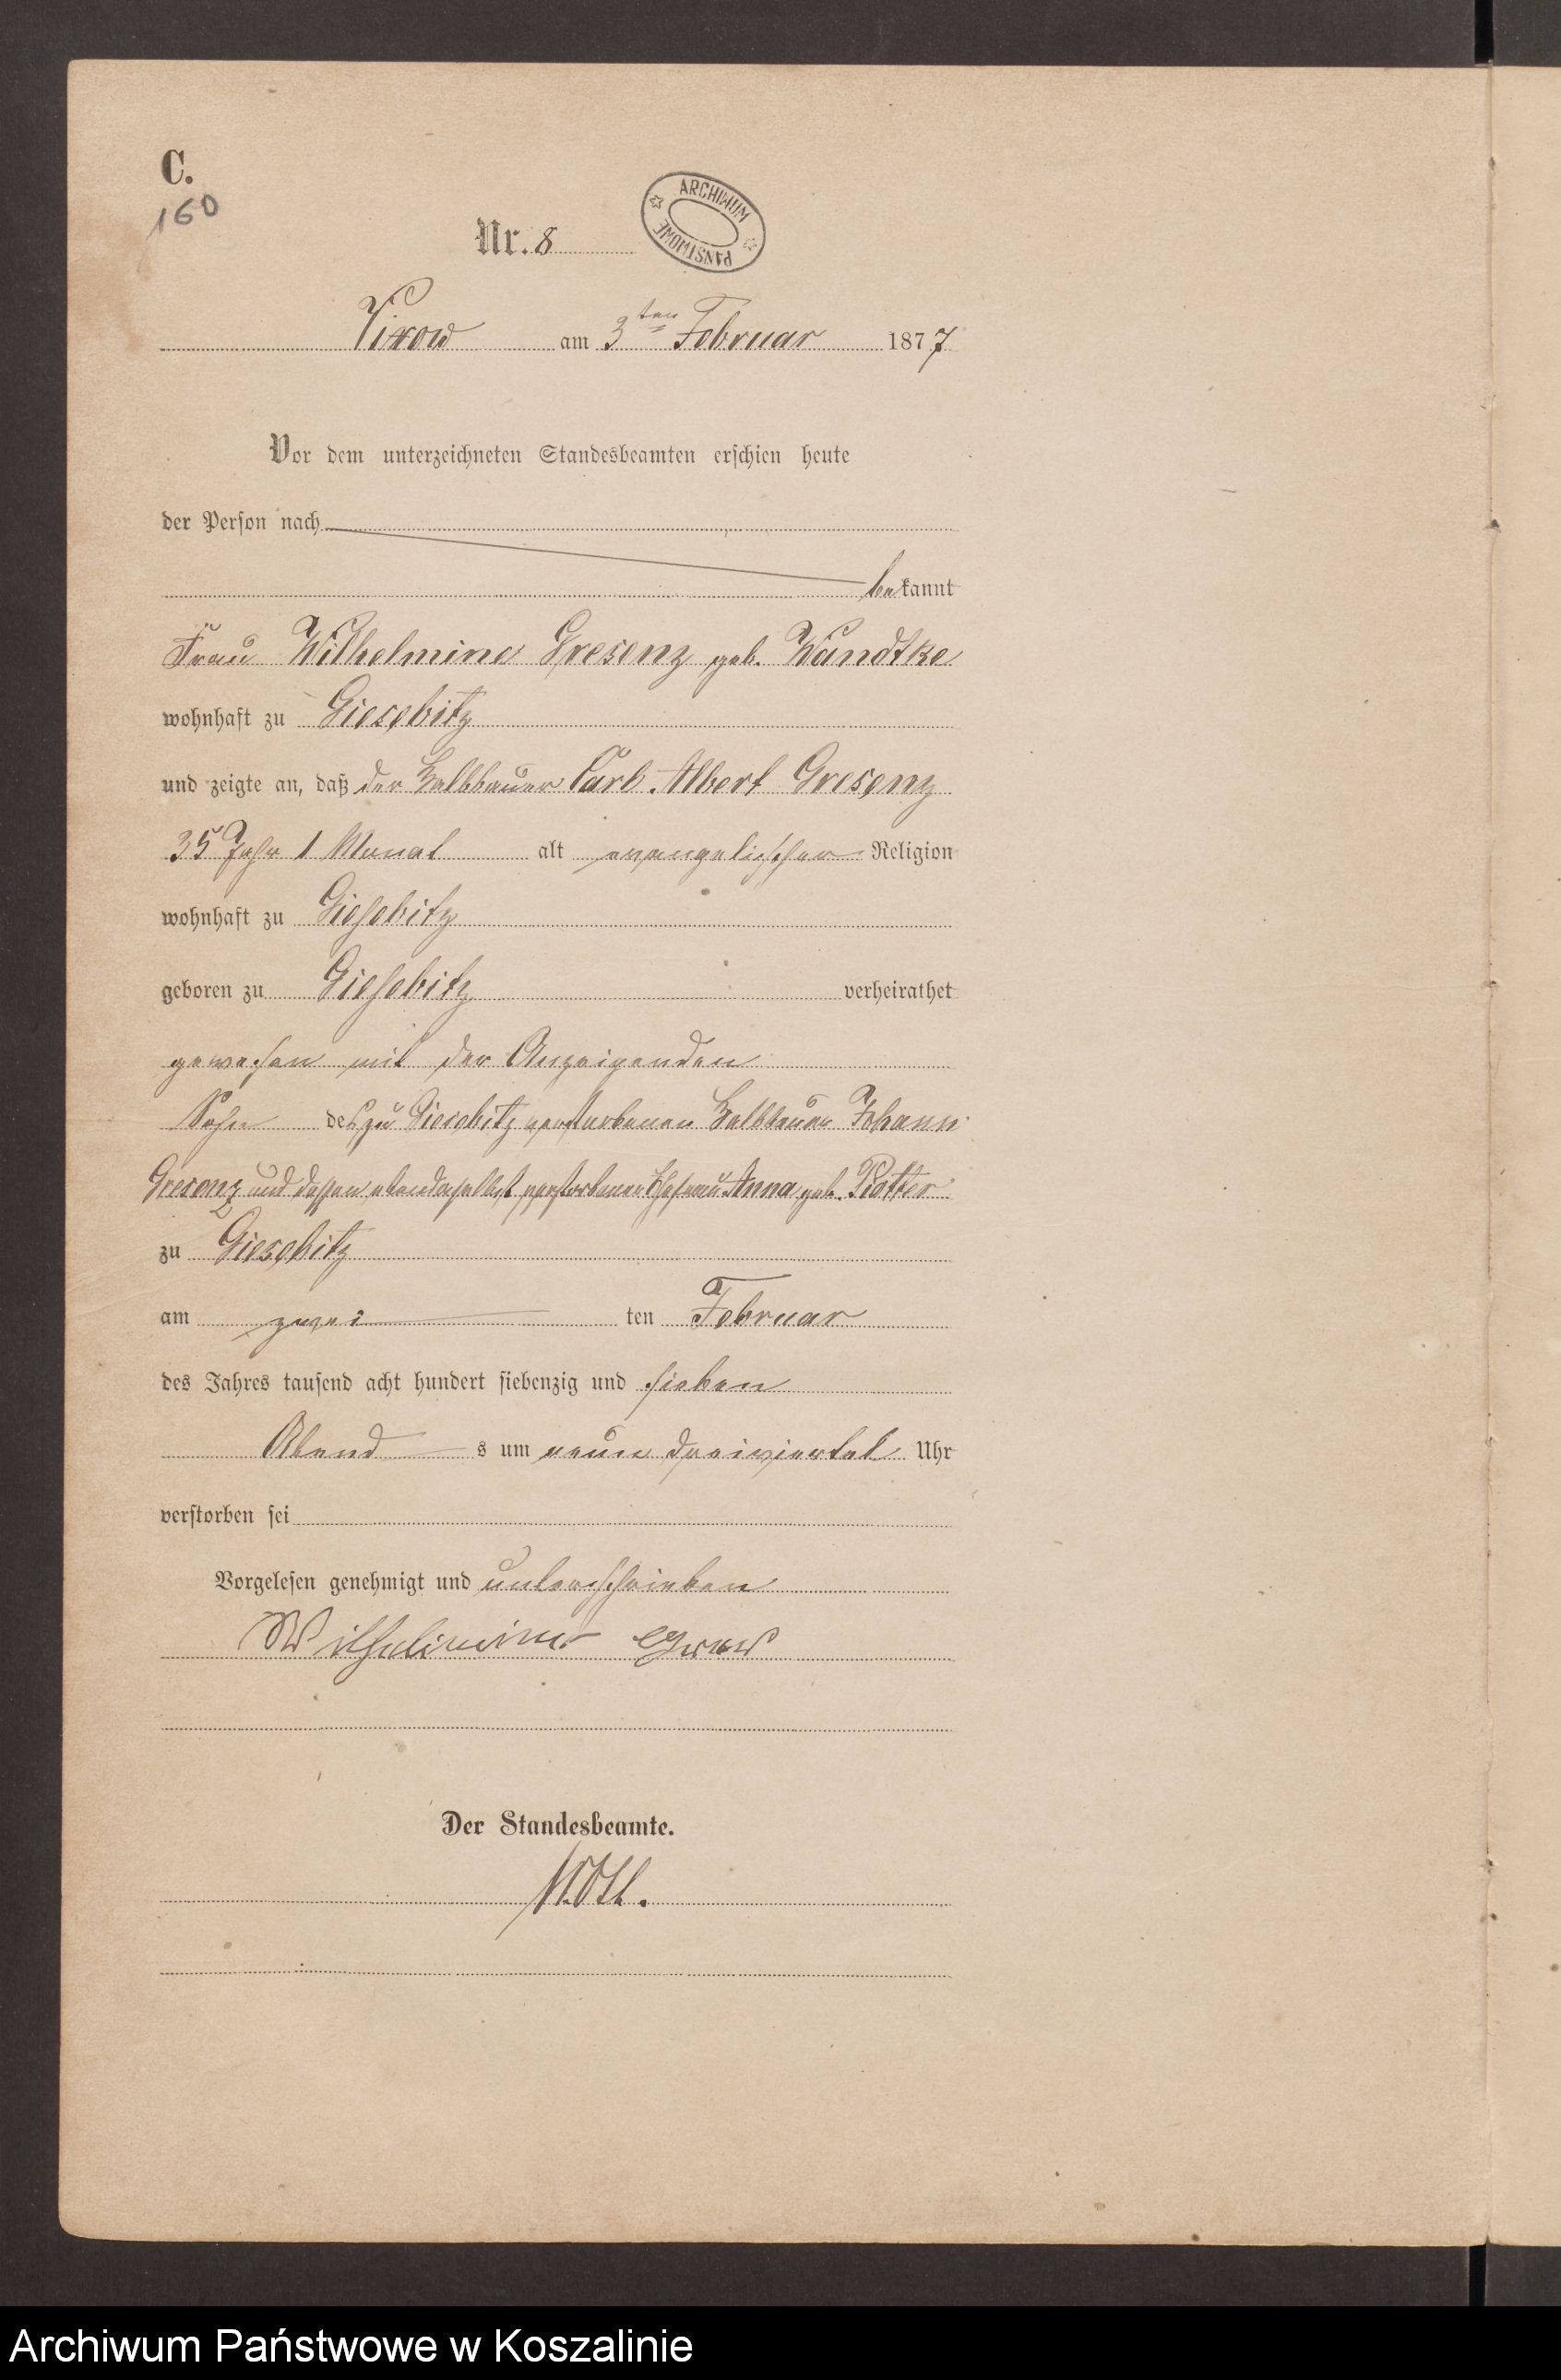 C.
160
Nr. 8
ARCHIWUM PAŃSTWOWE
Vixow am 3ten Februar 1877
Vor dem unterzeichneten Standesbeamten erschien heute
der Person nach
bekannt
Frau Wilhelmine Gresenz geb. Wandtke
wohnhaft zu Giesebitz
und zeigte an, daß der Halbbauer Carl Albert Gresenz
35 Jahr 1 Monat alt evangelischer Religion
wohnhaft zu Giesebitz
geboren zu Giesebitz verheirathet
gewesen mit der Anzeigenden
Sohn des zu Giesebitz verstorbenen Halbbauer Johann
Gresenz und dessen ebendaselbst verstorbenen Ehefrau Anna geb.
zu Giesebitz
am zwei ten Februar
des Jahres tausend acht hundert siebenzig und sieben
Abend s um neun dreiviertel Uhr
verstorben sei
Vorgelesen genehmigt und unterschrieben
Der Standesbeamte.
Archiwum Państwowe w Koszalinie